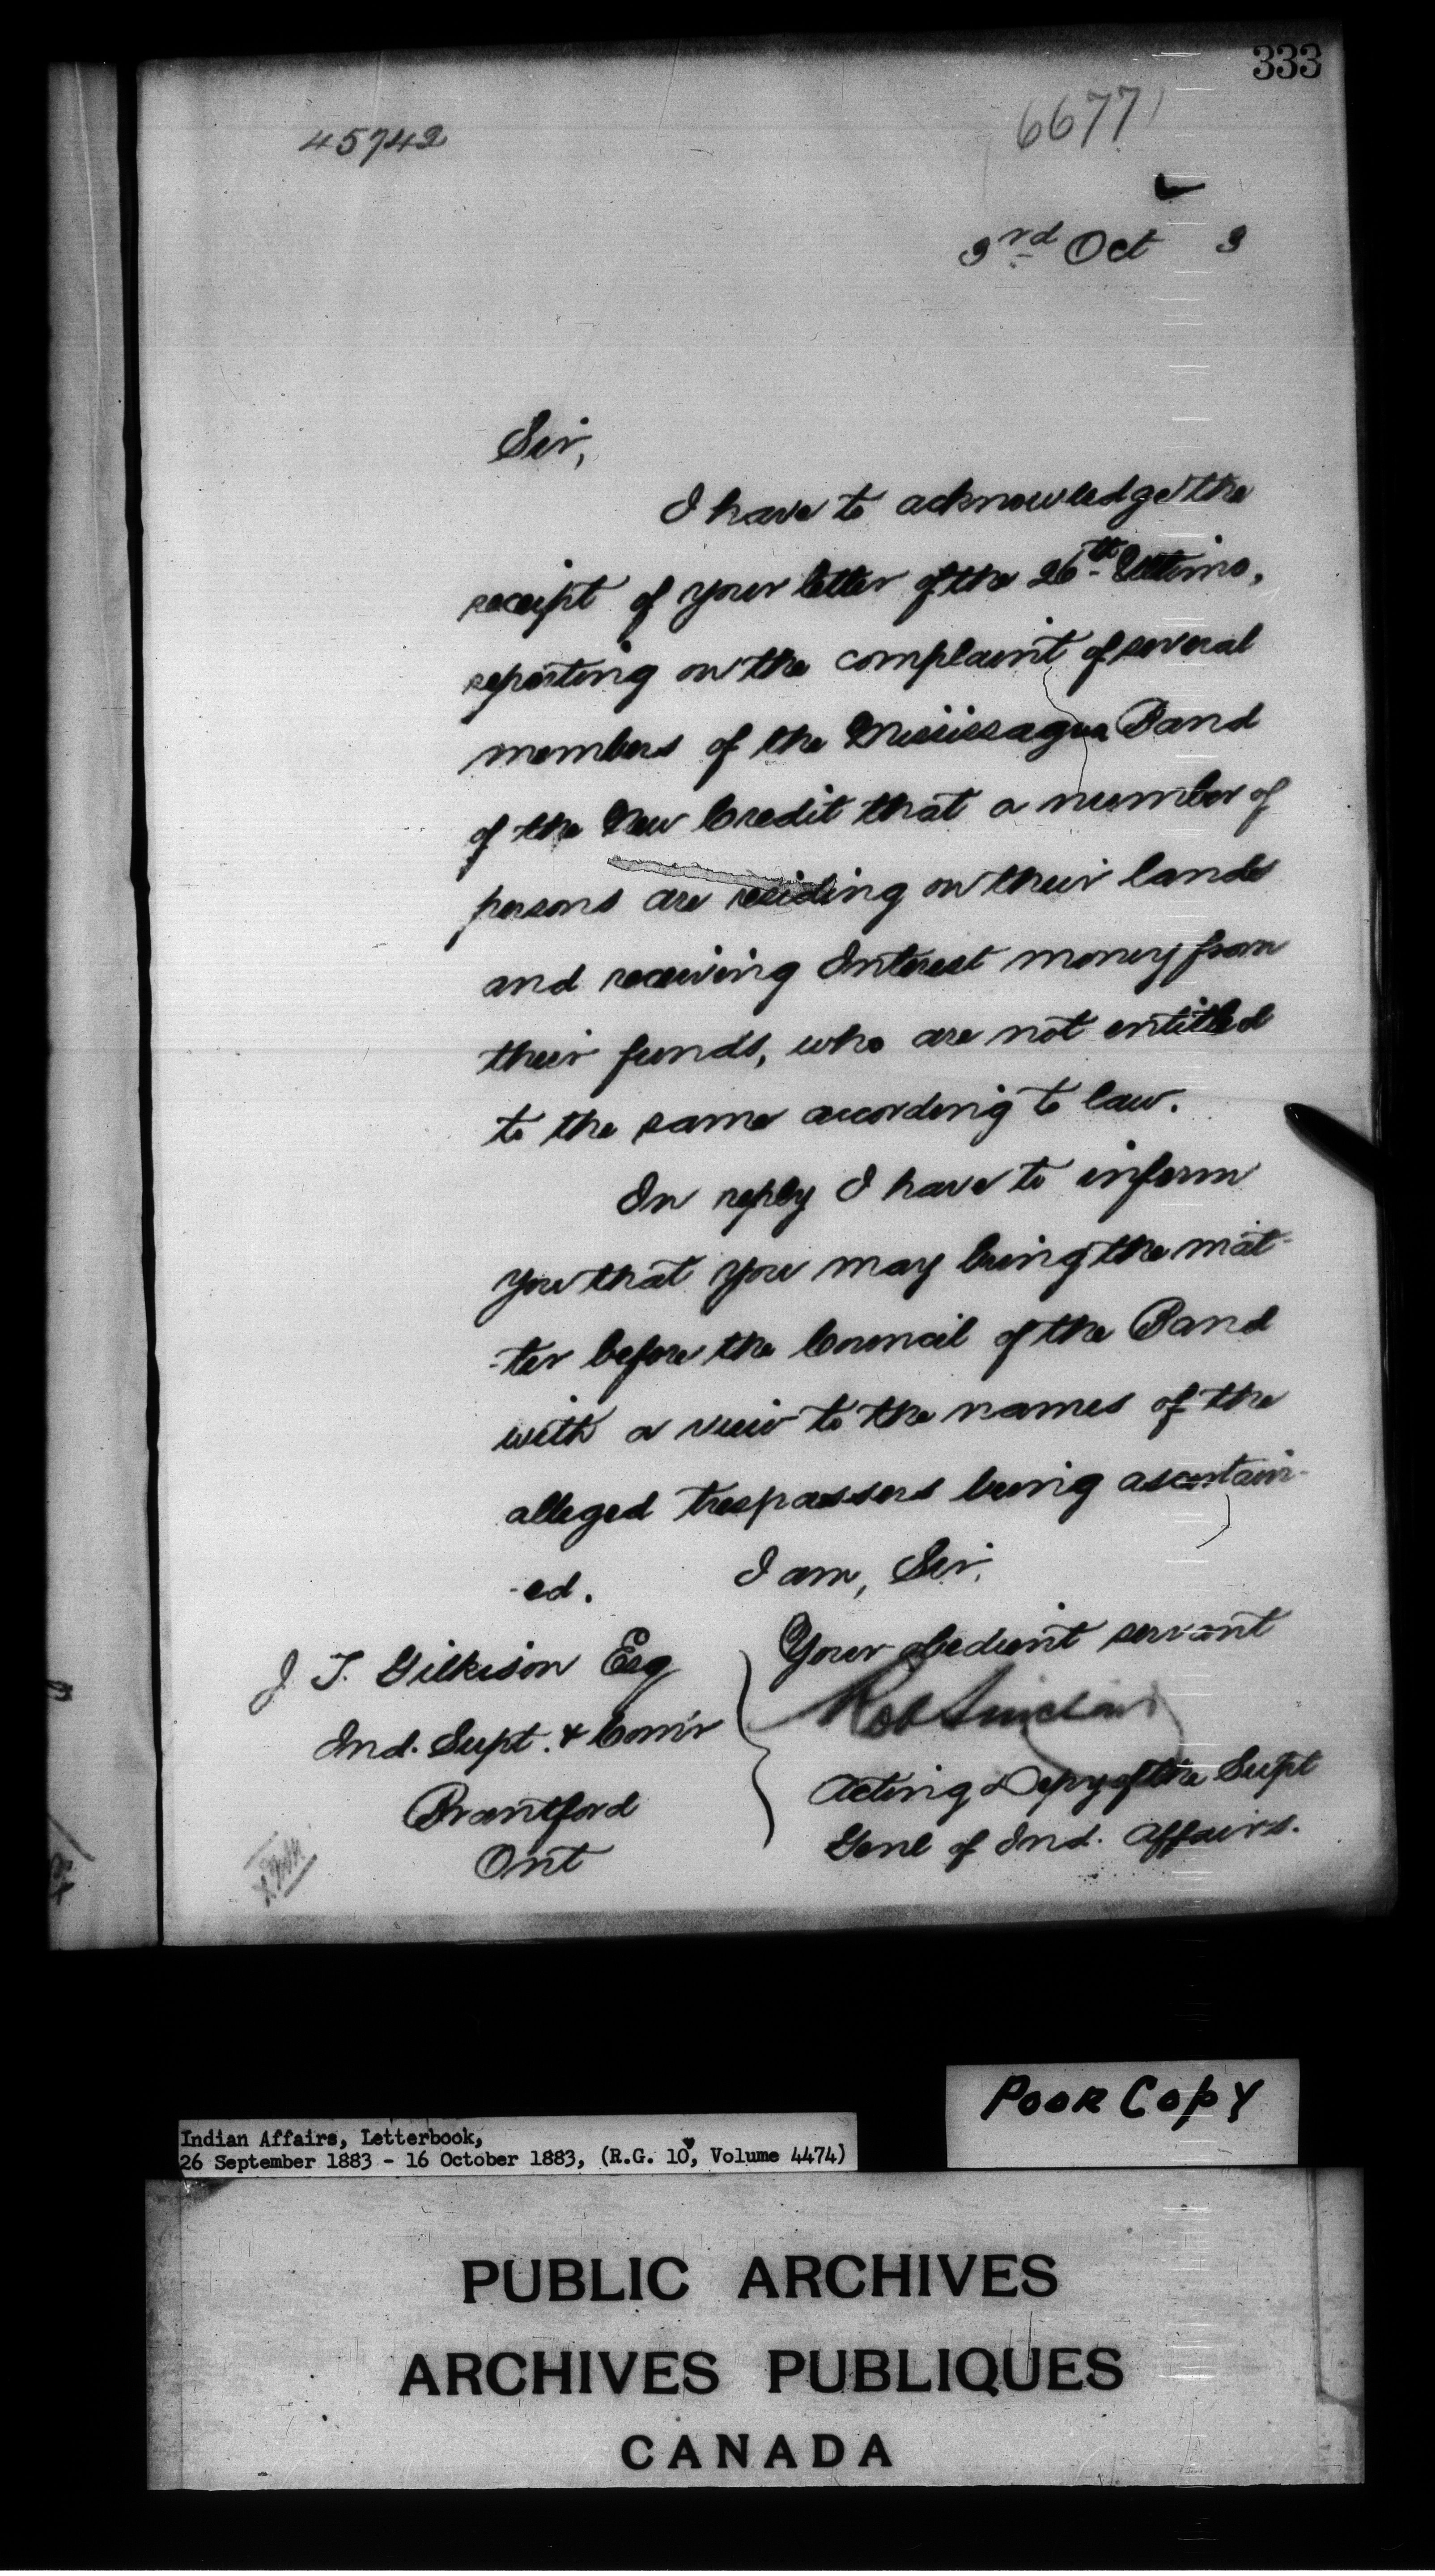 333
45742
6677
3rd Oct 3
Sir,
I have to acknowledge the
receipt of your letter of the 26th Ultimo,
reporting on the complaint of several
members of the Mississagua Band
of the New Credit that a number of
persons are residing on their lands
and receiving Interest money from
their funds, who are not entitled
to the same according to law.
In reply I have to inform
you that you may bring the mat-
-ter before the Council of the Band
with a view to the names of the
alleged trespassers being ascertain-
-ed. I am, Sir,
Your obedient servant
Rob Sinclair
Acting Depy of the Supt
Genl of Ind. Affairs.
J. T. Gilkison Esq
Ind. Supt. & Com'r
Brantford
Ont
Poor Copy
Indian Affairs, Letterbook,
26 September 1883 - 16 October 1883, (R.G. 10, Volume 4474)
PUBLIC ARCHIVES
ARCHIVES PUBLIQUES
CANADA